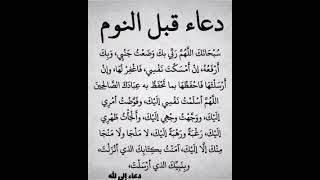 دعاء قبل النوم
سُبْحَانَكَ اللَّهُمَّ رَبِّي بِكَ وَضَعْتُ جَنْبِي، وَبِكَ
أَرْفَعُهُ، إنْ أَمْسَكْتَ نَفْسِي، فَاغْفِرْ لَهَا، وإنْ
أَرْسَلْتَهَا فَاحْفَظْهَا بما تَحْفَظُ به عِبَادَكَ الصَّالِحِينَ
اللَّهُمَّ أَسْلَمْتُ نَفْسِي إلَيْكَ، وَفَوَّضْتُ أَمْرِي
إلَيْكَ، وَوَجَّهْتُ وَجْهِي إلَيْكَ، وَأَلْجَأْتُ ظَهْرِي
إلَيْكَ، رَغْبَةً وَرَهْبَةً إلَيْكَ، لا مَلْجَأَ وَلَا مَنْجَا
مِنْكَ إلَّا إلَيْكَ، آمَنْتُ بكِتَابِكَ الذي أَنْزَلْتَ،
وبِنَبِيِّكَ الذي أَرْسَلْتَ،
دعاء إلى الله